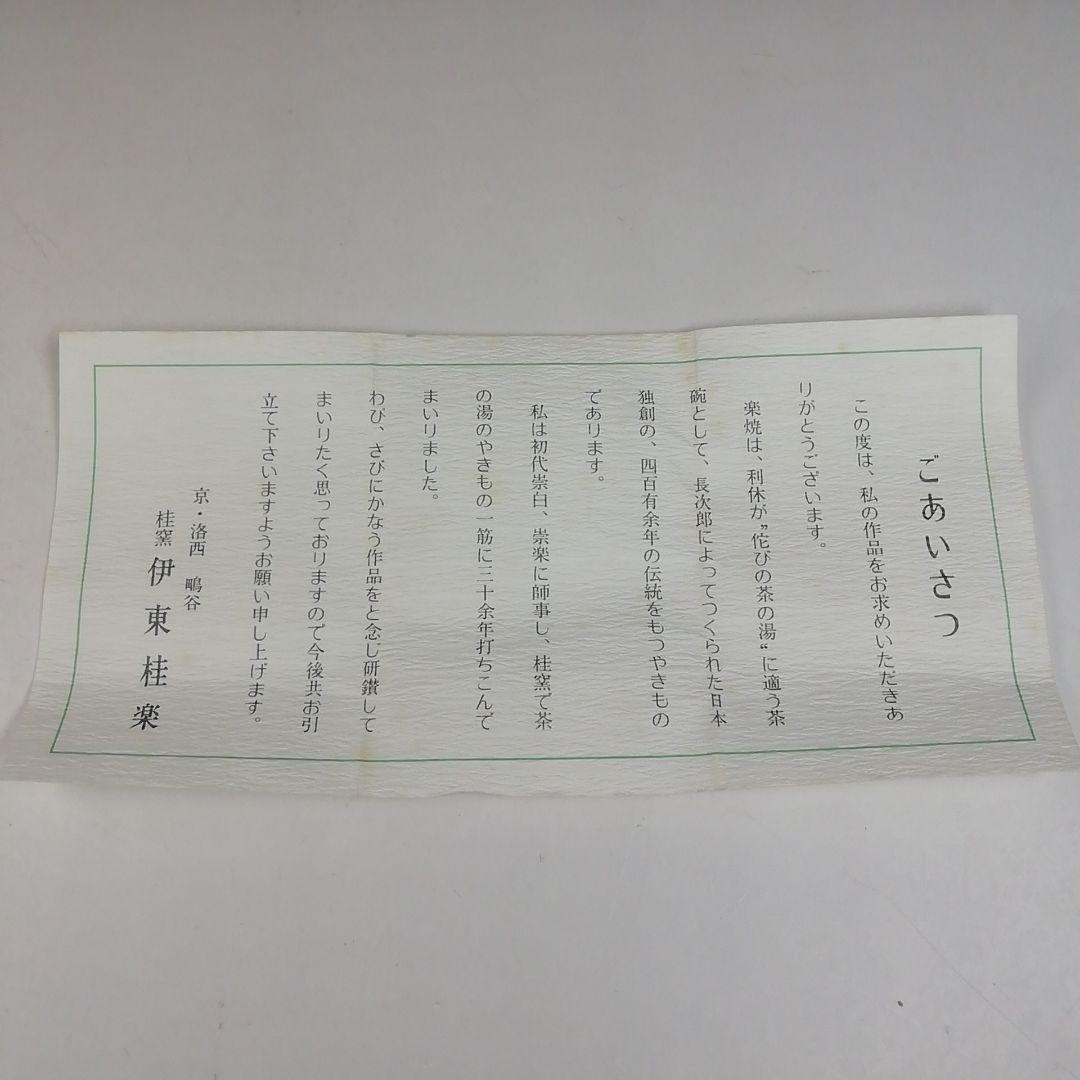 ごあいさつ
この度は、私の作品をお求めいただきあ
りがとうございます。
楽焼は、利休が〝侘びの茶の湯〟に適う茶
碗として、長次郎によってつくられた日本
独創の、四百有余年の伝統をもつやきもの
であります。
私は初代崇白、崇楽に師事し、桂窯で茶
の湯のやきもの一筋に三十余年打ちこんで
まいりました。
わび、さびにかなう作品をと念じ研鑚して
まいりたく思っておりますので今後共お引
立て下さいますようお願い申し上げます。
京・洛西 鴫谷
桂窯 伊東桂楽